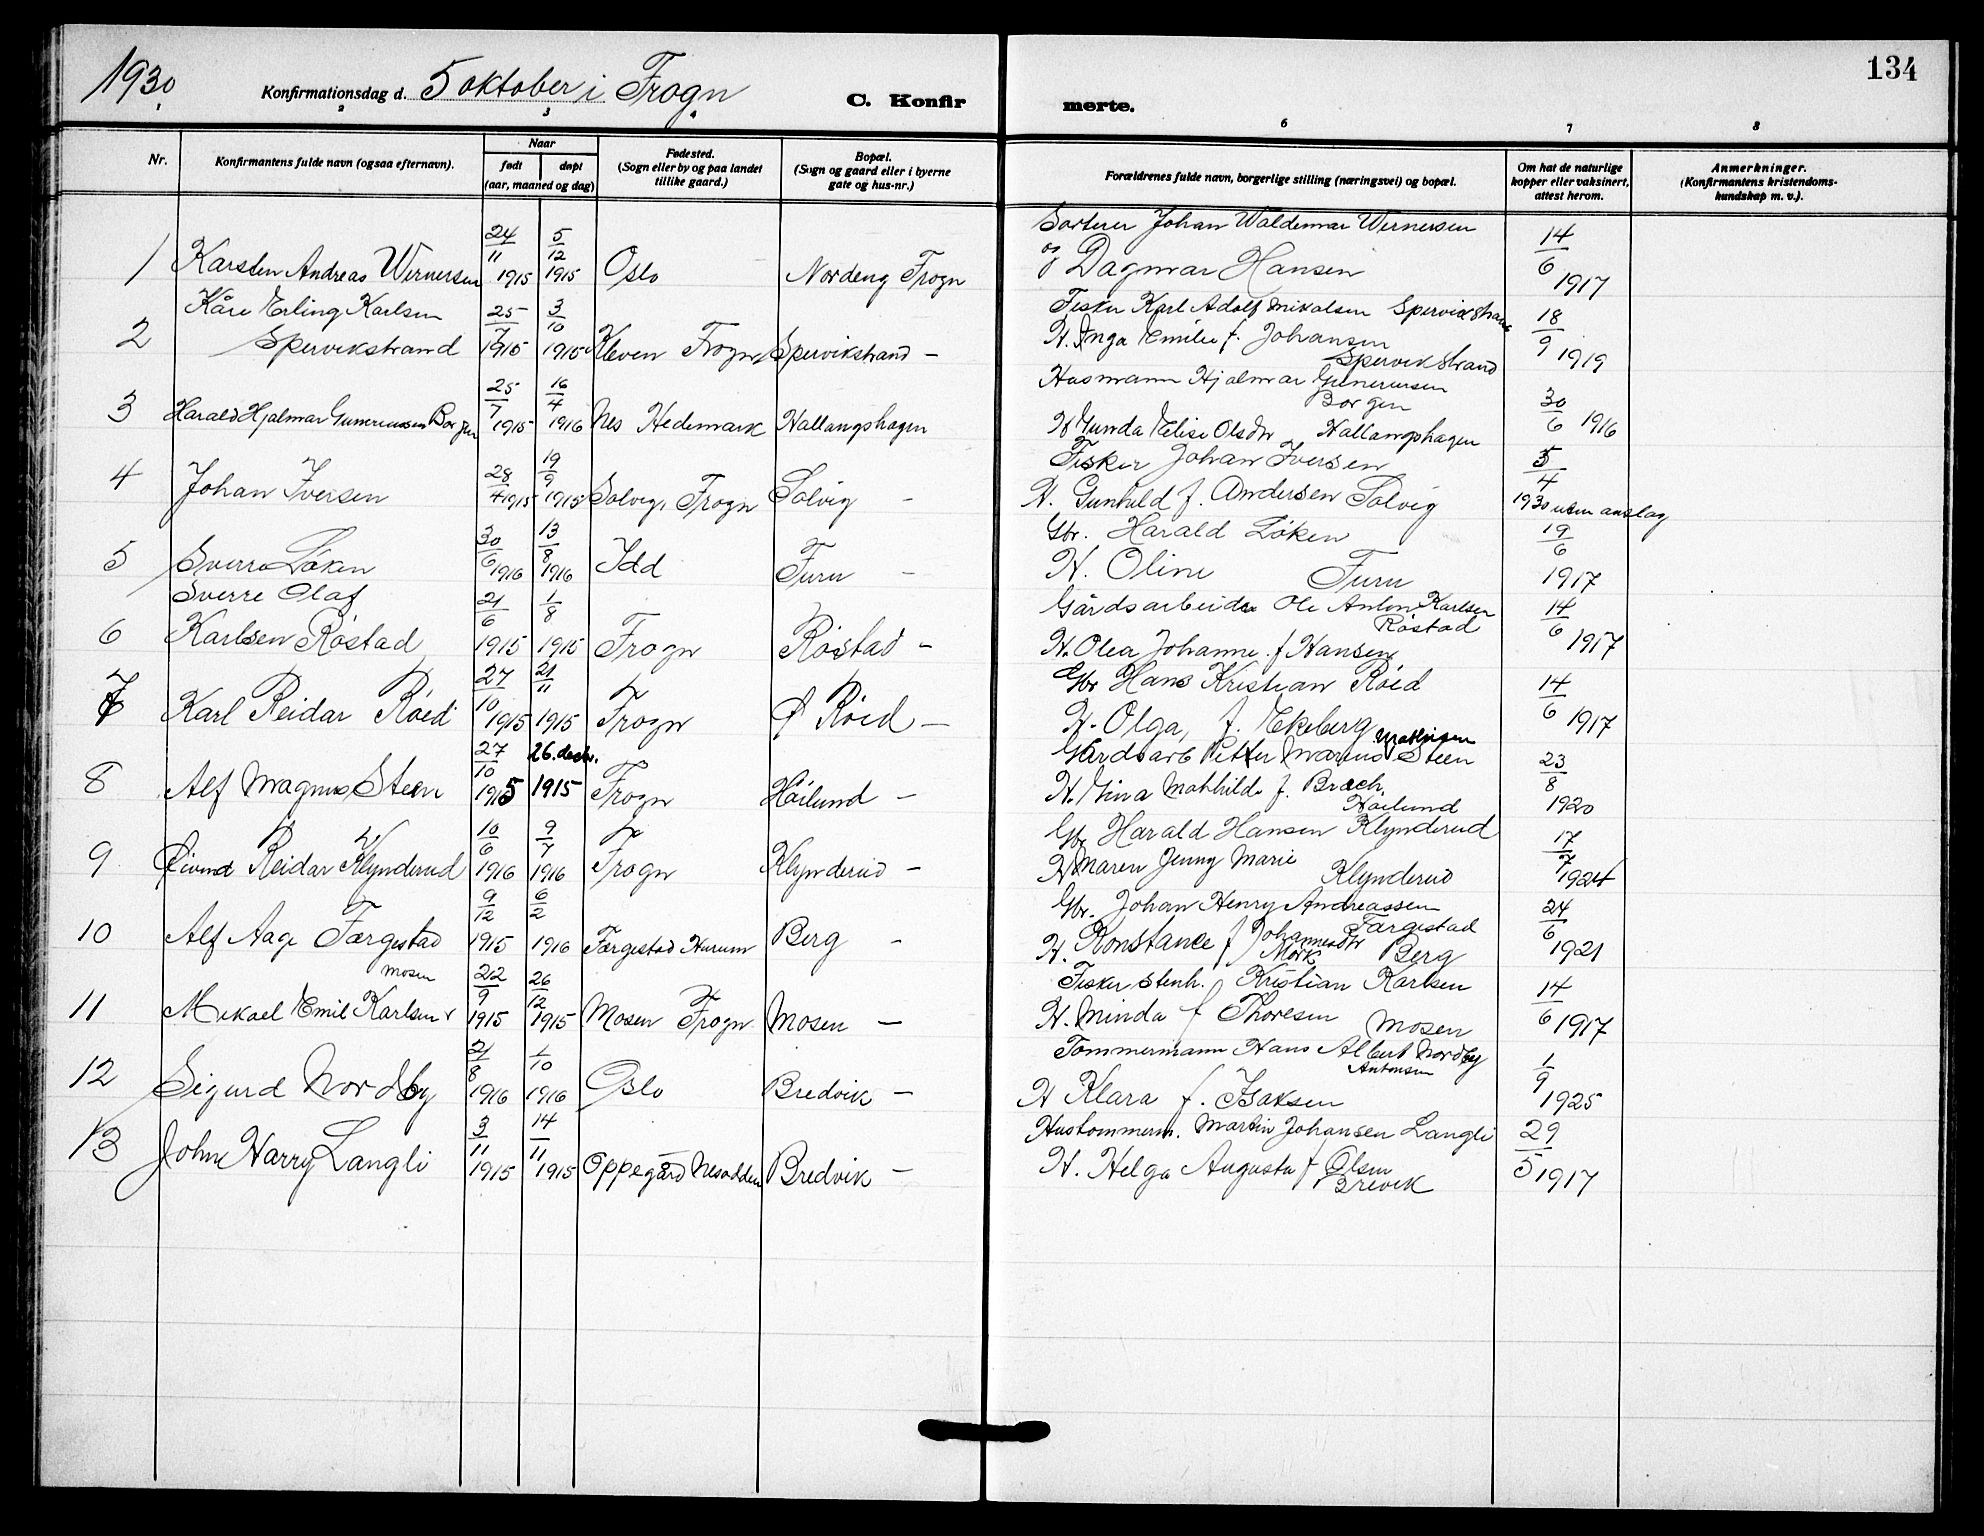 134
1930
Konfirmationsdag d. 5 oktober i Frogn
C. Konfir
merte.
2 3 4 6 7 8
Nr.
Konfirmantens fulde navn (ogsaa efternavn).
Naar
født
døpt
(aar, maaned og dag)
Fødested.
(Sogn eller by og paa landet
tillike gaard.)
Bopæl.
(Sogn og gaard eller i byerne
gate og hus-nr.)
Forældrenes fulde navn, borgerlige stilling (næringsvei) og bopæl.
Om hat de naturlige
kopper eller vaksinert,
attest herom.
Anmerkninger.
(Konfirmantens kristendoms-
kundskap m. v.).
1 Karsten Andreas Wernersen 24/11 1915 5/12 1915 Oslo Nordeng Frogn
Sorterer Johan Waldemar Wernersen
og Dagmar Hansen
14/6 1917
Kåre Erling Karlsen
2 Spervikstrand 25/7 1915 3/10 1915 Kleven Frogn Spervikstrand –
Fisker Karl Adolf Mikalsen Spervikstrand
H. Inga Emilie f. Johansen
Spervikstrand
18/9 1919
3 Harald Hjalmar Guneriussen Borgen 25/7 1915 16/4 1916 Nes Hedemark Hallangshagen
Husmann Hjalmar Guneriussen
Borgen
H Gunda Elise Olsdtr Hallangshagen
30/6 1916
4 Johan Iversen 28/4 1915 19/9 1915 Solvig, Frogn Solvig –
Fisker Johan Iversen
H. Gunhild f. Andersen Solvig
5/4
1930 uten anslag
5 Sverre Løken 30/6 1916 13/8 1916 Idd Furu –
Gbr. Harald Løken
H. Oline Furu
19/6 1917
Sverre Olaf
6 Karlsen Røstad 21/6 1915 1/8 1915 Frogn Røstad –
Gårdsarbeider Ole Anton Karlsen
Røstad
H. Olea Johanne f Hansen
14/6 1917
7 Karl Reidar Røed 27/10 1915 21/11 1915 Frogn Ø Røed –
Gbr Hans Kristian Røed
H. Olga, f. Ekeberg
14/6 1917
8 Alf Magnus Steen 27/10 1915 26. decbr. 1915 Frogn Høilund –
Gårdsarb Petter Marius Steen
H. Mathilde f. Brach,
Høilund
23/8 1920
9 Øivind Reidar Klynderud 10/6 1916 9/7 1916 Frogn Klynderud –
Gbr Harald Hansen Klynderud
H Maren Jenny Marie
Klynderud
17/7 1924
10 Alf Aage Færgestad 9/12 1915 6/2 1916 Færgestad Hurum Berg –
Gbr. Johan Henry Andreassen
Færgestad
H. Konstance f Johannesdtr
Mörk Berg
24/6 1921
Mosen
11 Mikael Emil Karlsen 22/9 1915 26/12 1915 Mosen Frogn Mosen –
Fisker Stenh. Kristian Karlsen
H. Minda f Thoresen Mosen
14/6 1917
12 Sigurd Nordby 21/8 1916 1/10 1916 Oslo Bredvik –
Tømmermann Hans Albert Nordby
Antonsen
H Klara f. Isaksen
1/9 1925
13 John Harry Langli 3/11 1915 14/11 1915 Oppegård Nesodden Bredvik –
Hustømmerm. Martin Johansen Langli
H. Helga Augusta f Olsen
Brevik
29/5 1917